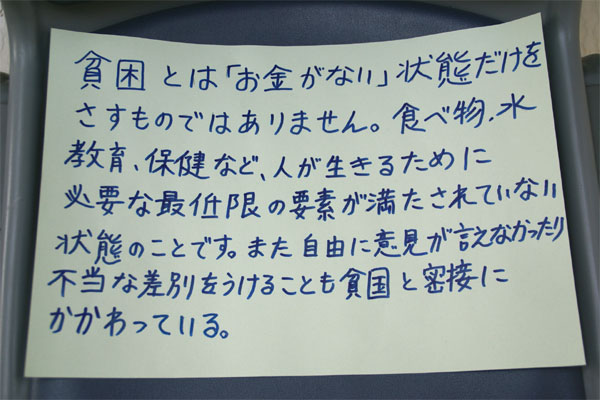 貧困とは「お金がない」状態だけを
さすものではありません。食べ物、水
教育、保健など、人が生きるために
必要な最低限の要素が満たされていない
状態のことです。また自由に意見が言えなかったり
不当な差別をうけることも貧国と密接に
かかわっている。